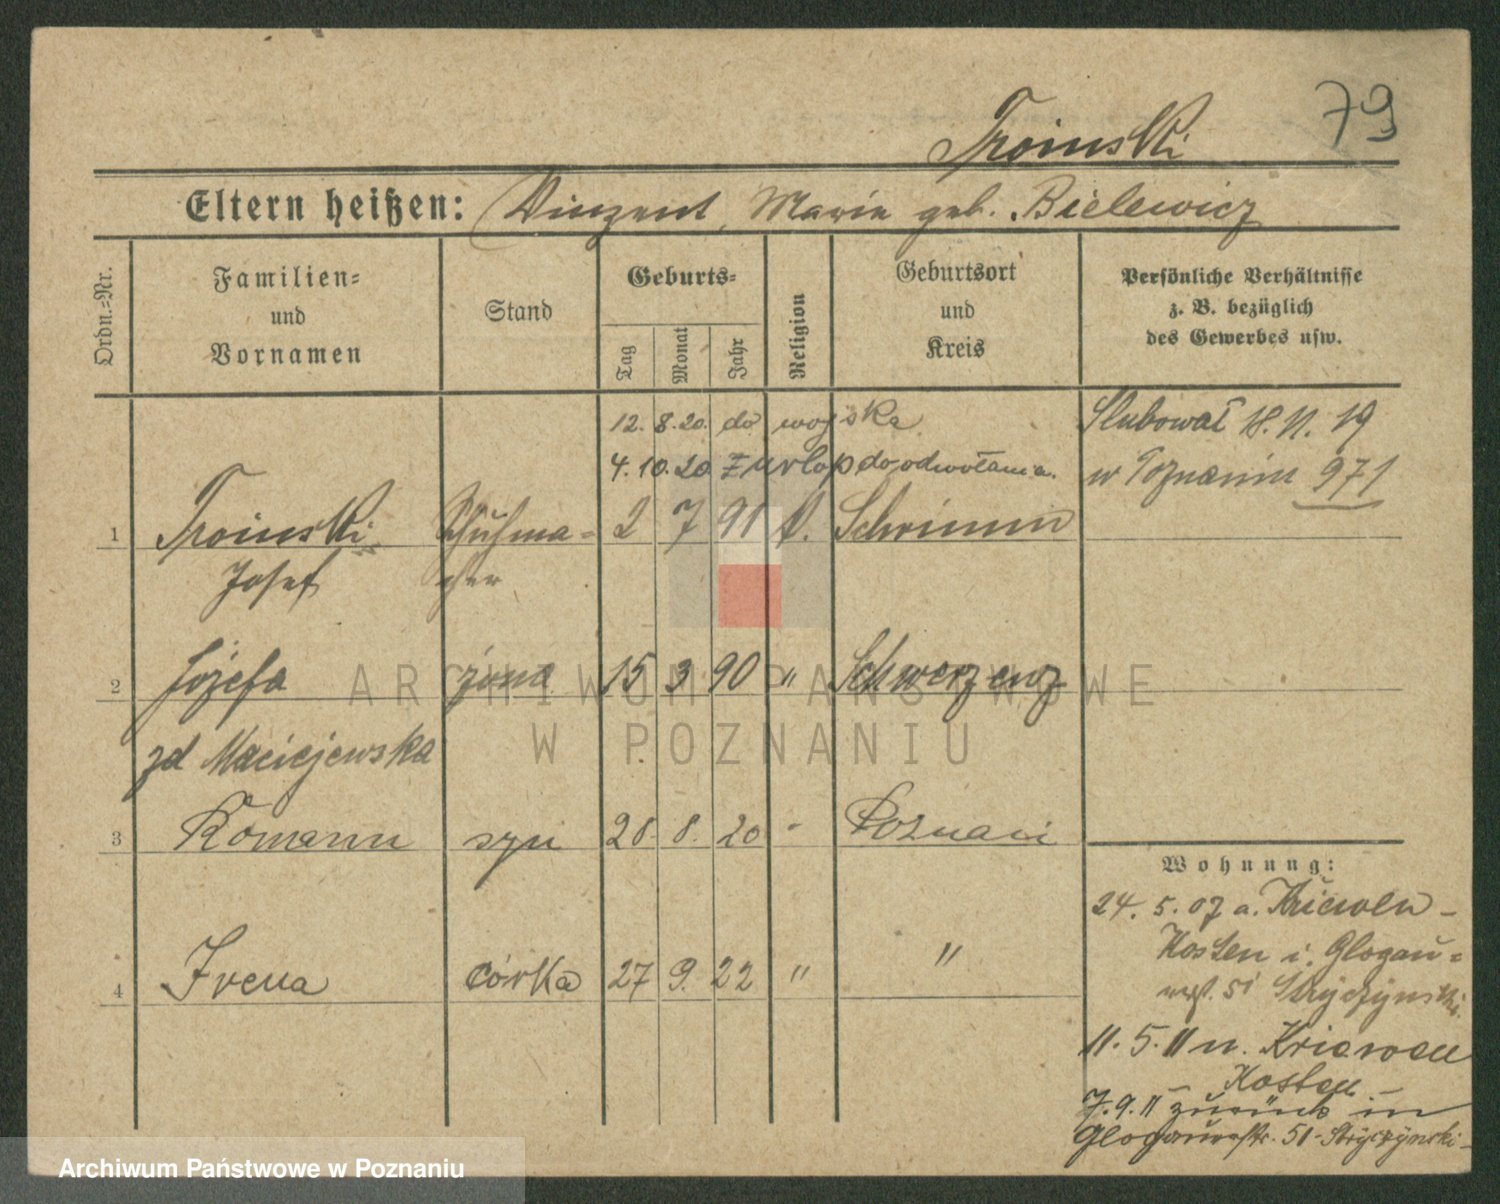 79
Troinski
Eltern heißen: Vinzent, Marie geb. Bielewicz
Ordn.-Nr.
Familien- und Vornamen
Stand
Geburts-
Tag
Monat
Jahr
Religion
Geburtsort und Kreis
Persönliche Verhältnisse
z. B. bezüglich
des Gewerbes usw.
12. 8. 20. do wojska
4. 10. 20 z urlop do odwołania.
Slubował 18. 11. 19
w Poznaniu 971
1 Troinski Schuhma- 2 7 91 k. Schrimm
Josef cher
2 Józefa żona 15 3 90 " Schwerzenz
zd Maciejewska
3 Romann syn 28. 8. 20 - Poznań
4 Irena córka 27 9. 22 " "
Wohnung:
24. 5. 07 a. Kriewen -
Kosten i. Glogau-
51 Stryczynski.
11. 5. 11 n. Kriewen
Kosten
7. 9. 11 zurück in
Glogauerstr. 51 - Stryczynski -
ARCHIWUM PAŃSTWOWE
W POZNANIU
Archiwum Państwowe w Poznaniu